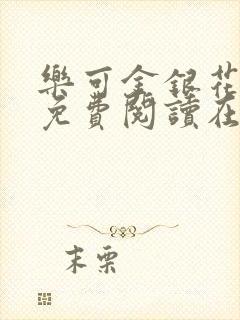 樂可金銀花
免費閱讀在
末栗